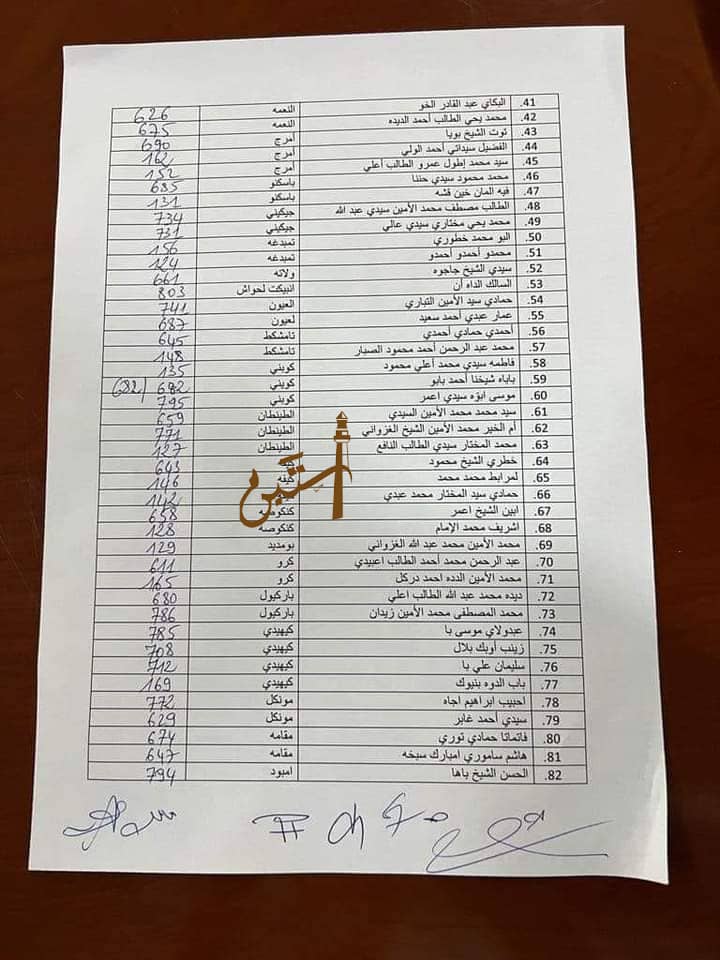 41. البكاي عبد القادر الخو النعمه 626
42. محمد يحي الطالب أحمد الديده النعمه 675
43. ثوت الشيخ بويا أمرج 690
44. الفضيل سيداتي أحمد الولي أمرج 162
45. سيد محمد إطول عمرو الطالب أعلي أمرج 152
46. محمد محمود سيدي حننا باسكنو 685
47. فيه المان خين فشه باسكنو 131
48. الطالب مصطفى محمد الأمين سيدي عبد الله جيكيني 734
49. محمد يحي مختاري سيدي عالي جيكيني 731
50. البو محمد خطوري تمبدغه 156
51. محمدو أحمدو أحمدو تمبدغه 124
52. سيدي الشيخ جاجوه ولاته 661
53. السالك الداه أن انبيكت لحواش 803
54. حمادي سيد الأمين التباري العيون 741
55. عمار عبدي أحمد سعيد لعيون 687
56. أحمدي حمادي أحمدي تامشكط 645
57. محمد عبد الرحمن أحمد محمود الصبار تامشكط 148
58. فاطمه سيدي محمد أعلي محمود كوبني 135
59. باباه شيخنا أحمد بابو كوبني 682 (682)
60. موسى ابوه سيدي اعمر كوبني 795
61. سيد محمد محمد الأمين السيدي الطينطان 659
62. أم الخير محمد الأمين الشيخ الغزواني الطينطان 771
63. محمد المختار سيدي الطالب النافع الطينطان 127
64. خطري الشيخ محمود 643
65. لمرابط محمد محمد كيفه 146
66. حمادي سيد المختار محمد عبدي 142
67. ابين الشيخ اعمر كنكوصه 658
68. اشريف محمد الإمام كنكوصه 128
69. محمد الأمين محمد عبد الله الغزواني بومديد 129
70. عبد الرحمن محمد أحمد الطالب اعبيدي كرو 611
71. محمد الأمين الدده احمد دركل كرو 165
72. ديده محمد عبد الله الطالب اعلي باركيول 680
73. محمد المصطفى محمد الأمين زيدان باركيول 786
74. عبدولاي موسى با كيهيدي 785
75. زينب أوبك بلال كيهيدي 708
76. سليمان علي با كيهيدي 712
77. باب الدوه بنيوك كيهيدي 169
78. احبيب ابراهيم اجاه مونكل 772
79. سيدي أحمد غابر مونكل 629
80. فاتماتا حمادي توري مقامه 674
81. هاشم ساموري امبارك سبخه مقامه 647
82. الحسن الشيخ باها امبود 794